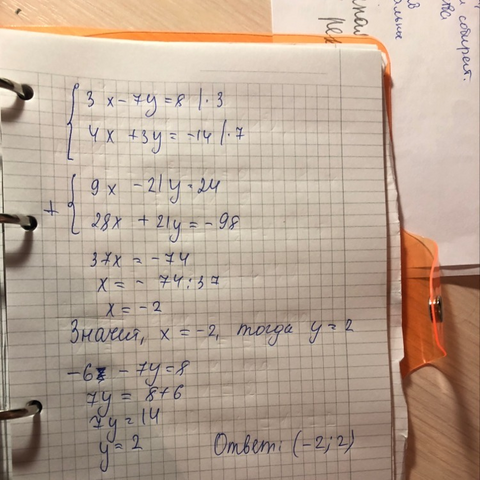 3x - 7y = 8 | · 3
4x + 3y = -14 | · 7
+
9x - 21y = 24
28x + 21y = -98
37x = -74
x = - 74 : 37
x = -2
Значит, x = -2, тогда y = 2
-6 - 7y = 8
7y = 8 + 6
7y = 14
y = 2
Ответ: (-2; 2)
собирей.